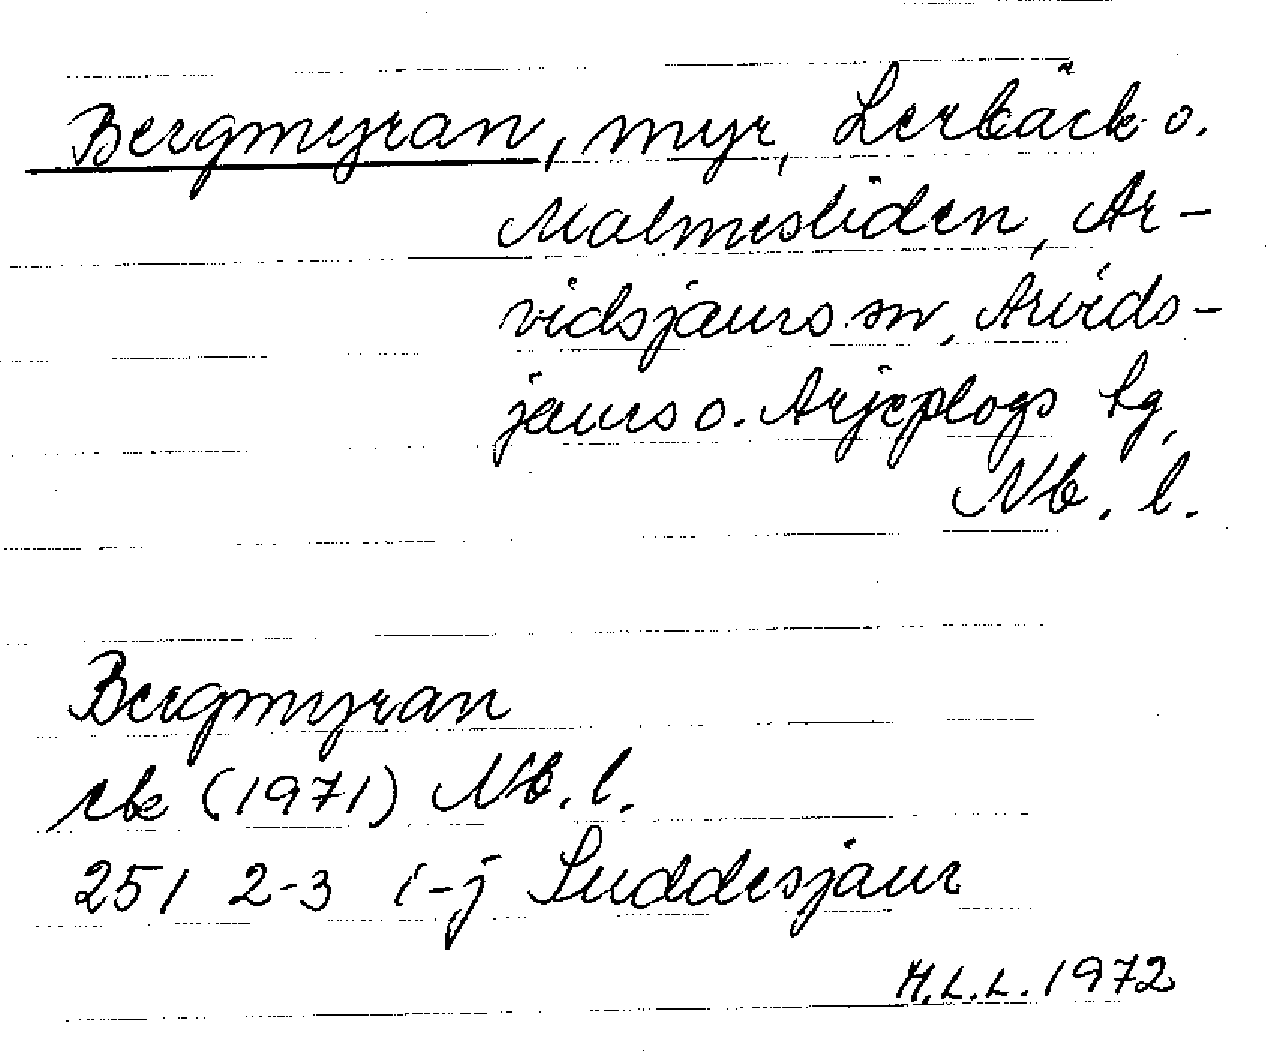 Bergmyran, myr, Lerbäck o.
Malmesliden, Ar-
vidsjaurs sn, Arvids-
jaurs o. Arjeplogs tg,
Nb. l.
Bergmyran
ebk (1971) Nb. l.
251 2-3 i-j Suddesjaur
H.L.L. 1972